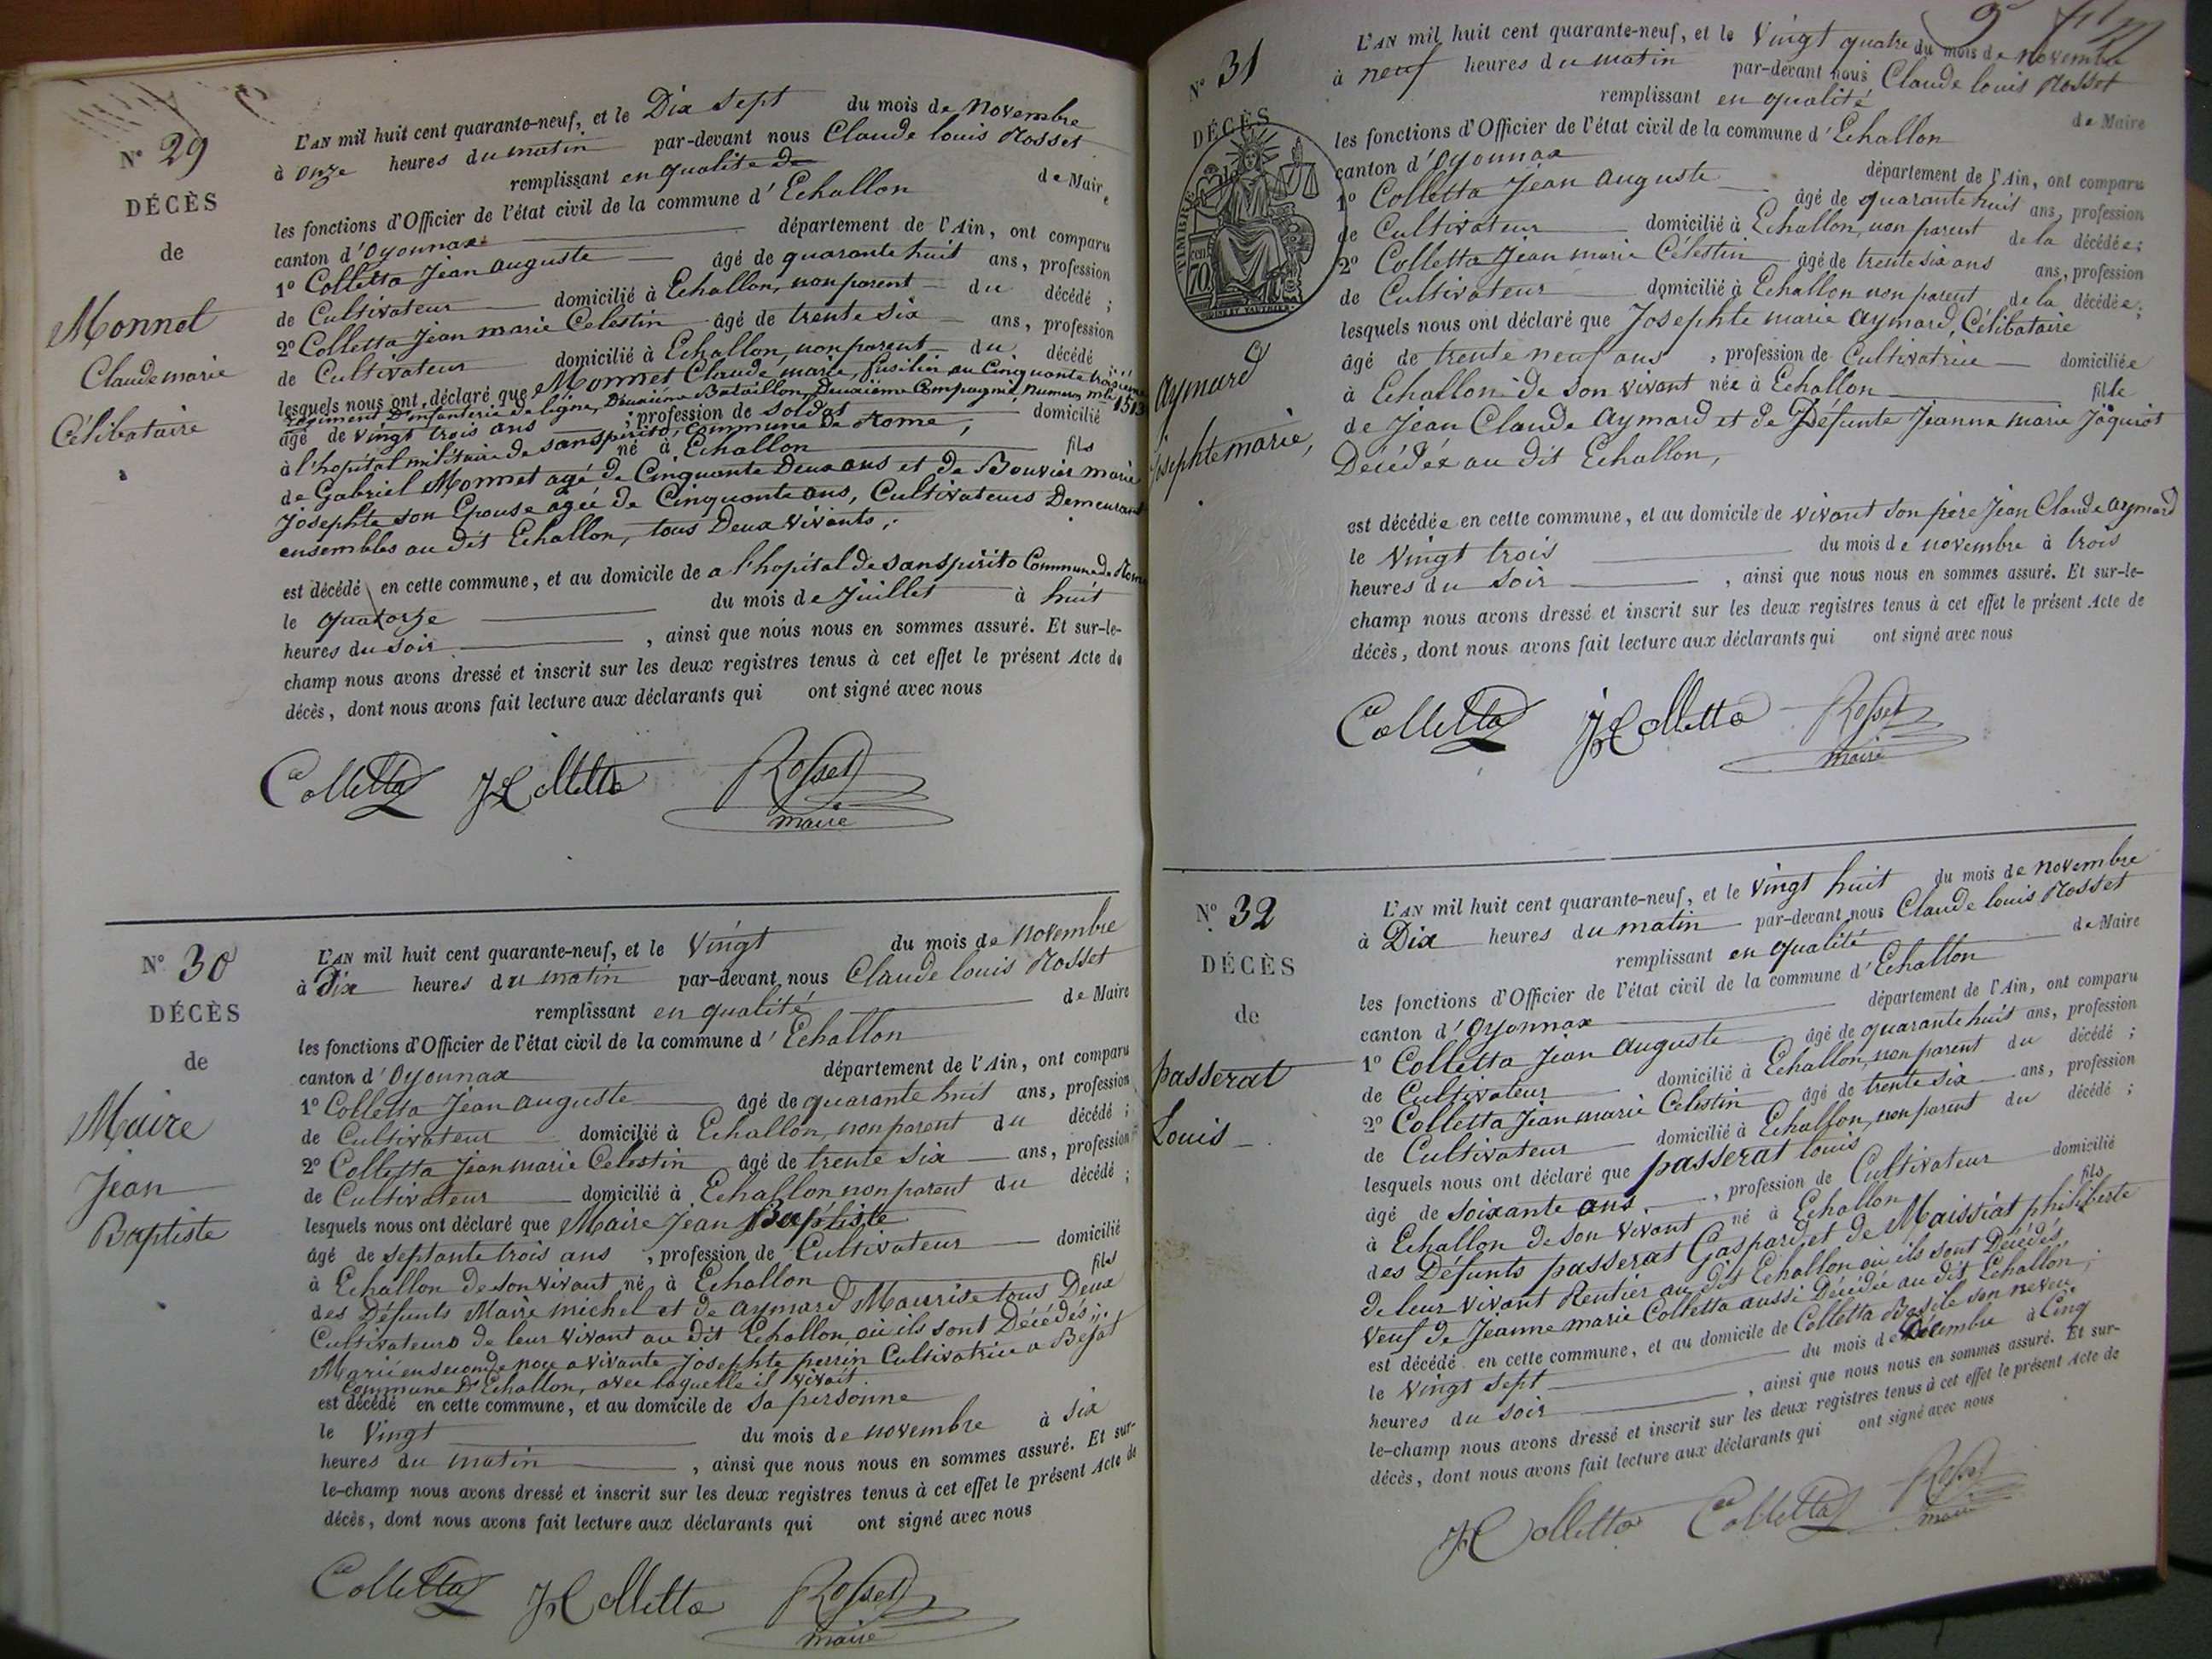 N° 29
DÉCÈS
de
Monnet
Claude marie
Célibataire
L'AN mil huit cent quarante-neuf, et le Dix sept du mois de Novembre
à onze heures du matin par-devant nous Claude louis Rosset
remplissant en qualité de de Maire
les fonctions d'Officier de l'état civil de la commune d'Echallon
canton d'Oyonnax département de l'Ain, ont comparu
1° Colletta Jean auguste âgé de quarante huit ans, profession
de Cultivateur domicilié à Echallon, non parent du décédé ;
2° Colletta Jean marie Celestin âgé de trente six ans, profession
de Cultivateur domicilié à Echallon, non parent du décédé
lesquels nous ont déclaré que Monnet Claude marie, fusilier au Cinquante troisième
régiment D'infanterie de ligne, Deuxième Bataillon, Deuxième Compagnie, numero mle 1513
âgé de vingt trois ans ; profession de soldat domicilié
à l'hopital militaire de sanspirito, commune de Rome,
né à Echallon fils
de Gabriel Monnet agé de Cinquante Deux ans et de Bouvier marie
Josephte son Epouse agée de Cinquante ans, Cultivateurs Demeurant
ensembles au dit Echallon, tous Deux vivants ;
est décédé en cette commune, et au domicile de a l'hopital de sanspirito Commune de Rome
le quatorze du mois de Juillet à huit
heures du soir , ainsi que nous nous en sommes assuré. Et sur-le-
champ nous avons dressé et inscrit sur les deux registres tenus à cet effet le présent Acte de
décès, dont nous avons fait lecture aux déclarants qui ont signé avec nous
Colletta JColletta Rosset
maire
N° 30
DÉCÈS
de
Maire
Jean
Baptiste
L'AN mil huit cent quarante-neuf, et le Vingt du mois de Novembre
à Dix heures du matin par-devant nous Claude louis Rosset
remplissant en qualité de Maire
les fonctions d'Officier de l'état civil de la commune d'Echallon
canton d'Oyonnax département de l'Ain, ont comparu
1° Colletta Jean auguste âgé de quarante huit ans, profession
de Cultivateur domicilié à Echallon, non parent du décédé ;
2° Colletta Jean marie Celestin âgé de trente six ans, profession
de Cultivateur domicilié à Echallon non parent du décédé ;
lesquels nous ont déclaré que Maire Jean Baptiste
âgé de septante trois ans , profession de Cultivateur domicilié
à Echallon de son vivant né à Echallon fils
des Défunts Maire michel et de aymard Maurise tous Deux
Cultivateurs de leur vivant au dit Echallon où ils sont Décédés ;
Marié en seconde noce a vivante Josephte perrin Cultivatrice a
Commune D'Echallon, avec laquelle il vivait
est décédé en cette commune, et au domicile de sa personne
le Vingt du mois de novembre à six
heures du matin , ainsi que nous nous en sommes assuré. Et sur-
le-champ nous avons dressé et inscrit sur les deux registres tenus à cet effet le présent Acte de
décès, dont nous avons fait lecture aux déclarants qui ont signé avec nous
Colletta JColletta Rosset
maire
N° 31
DÉCÈS
TIMBRE
70
Aymard
Josephte marie,
L'AN mil huit cent quarante-neuf, et le Vingt quatre du mois de novembre
à neuf heures du matin par-devant nous Claude louis Rosset
remplissant en qualité de Maire
les fonctions d'Officier de l'état civil de la commune d'Echallon
canton d'Oyonnax département de l'Ain, ont comparu
1° Colletta Jean auguste âgé de quarante huit ans, profession
de Cultivateur domicilié à Echallon, non parent de la décédée ;
2° Colletta Jean marie Célestin âgé de trente six ans ans, profession
de Cultivateur domicilié à Echallon non parent de la décédée ;
lesquels nous ont déclaré que Josephte marie aymard, Célibataire
âgé de trente neuf ans , profession de Cultivatrice domiciliée
à Echallon de son vivant née à Echallon fille
de Jean Claude aymard et de Défunte Jeanne marie Jaquiot
Décédée au dit Echallon,
est décédée en cette commune, et au domicile de vivant son père Jean Claude aymard
le Vingt trois du mois de novembre à trois
heures du soir , ainsi que nous nous en sommes assuré. Et sur-le-
champ nous avons dressé et inscrit sur les deux registres tenus à cet effet le présent Acte de
décès, dont nous avons fait lecture aux déclarants qui ont signé avec nous
Colletta JColletta Rosset
maire
N° 32
DÉCÈS
de
passerat
Louis
L'AN mil huit cent quarante-neuf, et le vingt huit du mois de novembre
à Dix heures du matin par-devant nous Claude louis Rosset
remplissant en qualité de Maire
les fonctions d'Officier de l'état civil de la commune d'Echallon
canton d'Oyonnax département de l'Ain, ont comparu
1° Colletta Jean auguste âgé de quarante huit ans, profession
de Cultivateur domicilié à Echallon, non parent du décédé ;
2° Colletta Jean marie Celestin âgé de trente six ans, profession
de Cultivateur domicilié à Echallon, non parent du décédé ;
lesquels nous ont déclaré que passerat louis
âgé de soixante ans. , profession de Cultivateur domicilié
à Echallon de son vivant né à Echallon fils
des Défunts passerat Gaspard, et de Maissiat philiberte
de leur vivant Rentier au dit Echallon où ils sont Décédés,
Veuf de Jeanne marie Colletta aussi Décédée au dit Echallon ;
est décédé en cette commune, et au domicile de Colletta Basile son neveu
le vingt sept du mois de à Cinq
heures du soir , ainsi que nous nous en sommes assuré. Et sur-
le-champ nous avons dressé et inscrit sur les deux registres tenus à cet effet le présent Acte de
décès, dont nous avons fait lecture aux déclarants qui ont signé avec nous
JColletta Colletta Rosset
maire